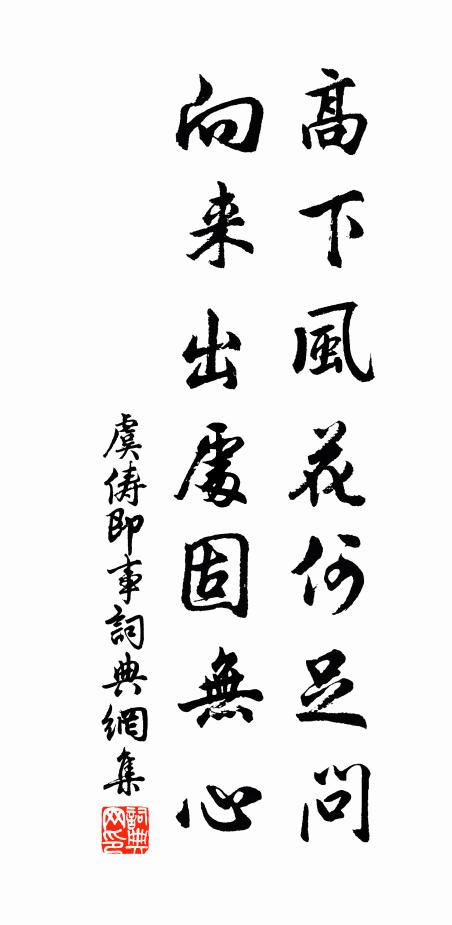 高下風花何足問
向来出處固無心
虞俦即事詞典網集
詞典网印